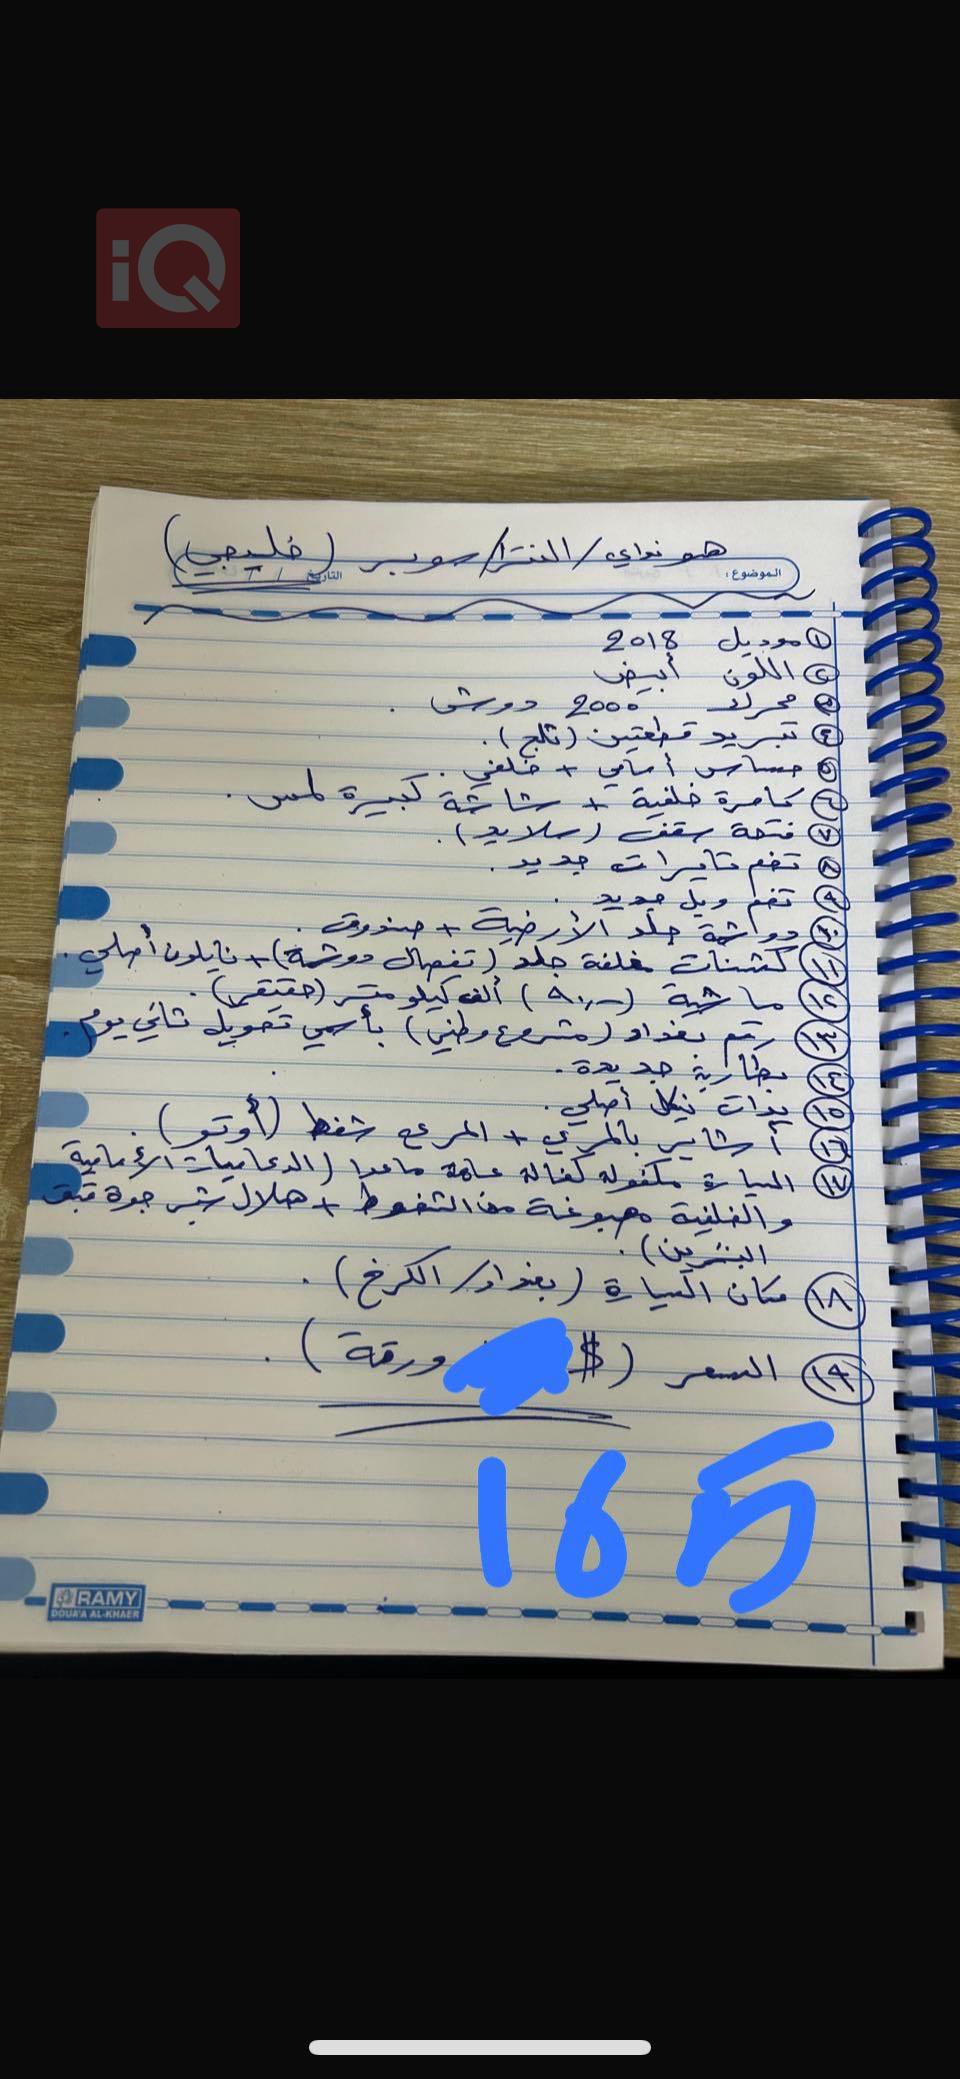 iQ
هونداي / النترا / سوبر (خليجي)
الموضوع:
التاريخ / /
١ موديل 2018
٢ اللون أبيض
٣ محرك 2000 دوش .
٤ تبريد قطعتين (ثلج) .
٥ حساس أمامي + خلفي .
٦ كامرة خلفية + شاشة كبيرة لمس .
٧ فتحة سقف (سلايد) .
٨ تخم تايرات جديد .
٩ تخم ويل جديد .
١٠ دواشة جلد الأرضية + صندوق .
١١ كشنات مغلفة جلد (تفصال دوشمة) + نايلون أصلي .
١٢ ماشية (٩٠) ألف كيلو متر (حقيقي) .
رقم بغداد (مشروع وطني) بأسمي تحويل ثاني يوم .
بطارية جديدة .
١٥ يدات نيكل أصلي .
١٦ أشاير بالمري + المري شفط (أوتو) .
١٧ السيارة مكفولة كفالة عامة ماعدا (الدعاميات الأمامية
والخلفية مصبوغة من الشخوط + هلال شبر جوة قبق
البنزين) .
١٨ مكان السيارة (بغداد / الكرخ) .
١٩ السعر ($ ورقة) .
165
RAMY
DOUA'A AL-KHAER